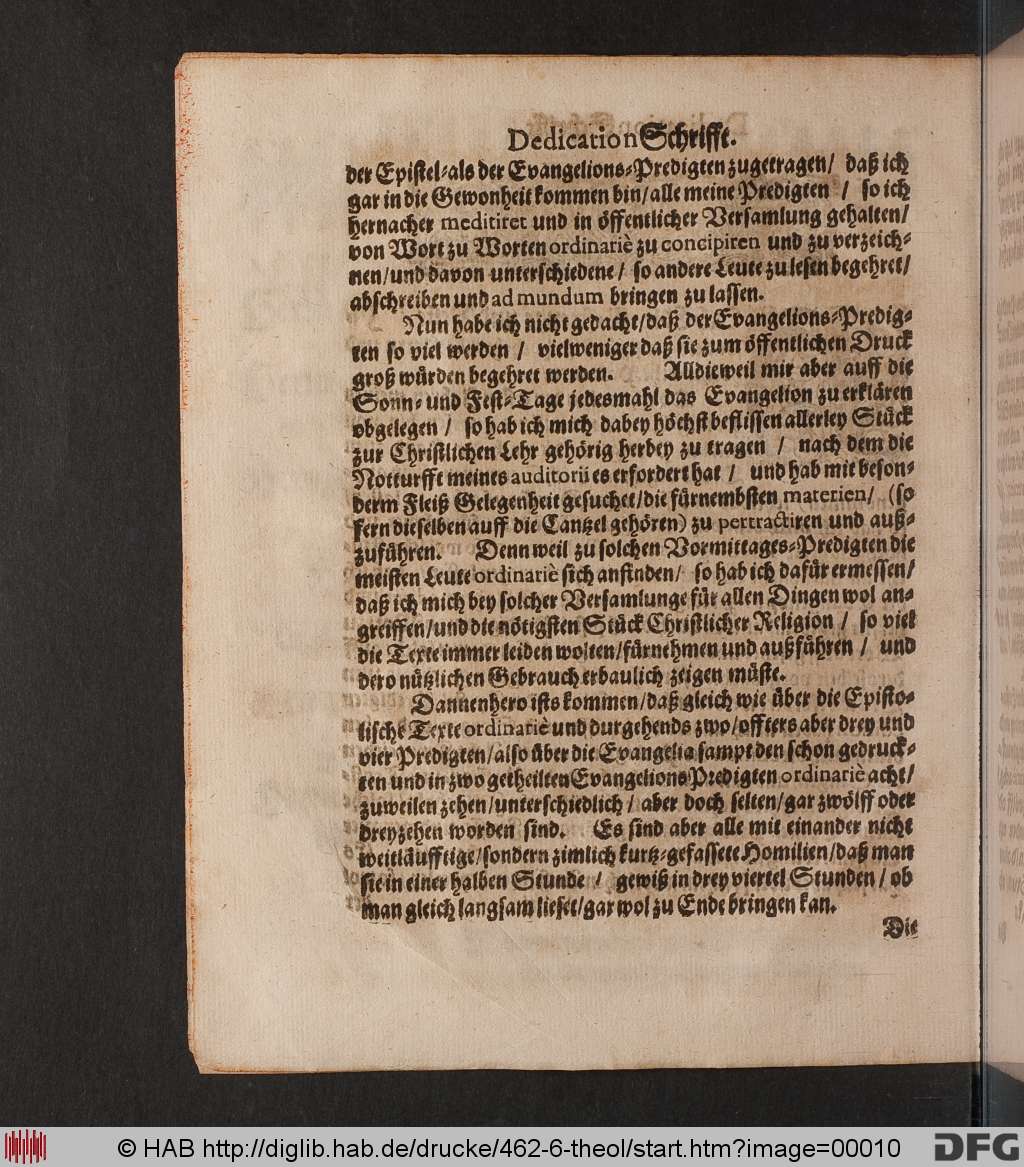 Dedication Schrifft.
der Epistel-als der Evangelions-Predigten zugetragen/ daß ich
gar in die Gewonheit kommen bin/alle meine Predigten / so ich
hernacher meditiret und in öffentlicher Versamlung gehalten/
von Wort zu Worten ordinariè zu concipiren und zu verzeich-
nen/und davon unterschiedene/ so andere Leute zu lesen begehret/
abschreiben und ad mundum bringen zu lassen.
Nun habe ich nicht gedacht/daß der Evangelions-Predig-
ten so viel werden / vielweniger daß sie zum öffentlichen Druck
groß würden begehret werden. Alldieweil mir aber auff die
Sonn- und Fest-Tage jedesmahl das Evangelion zu erklären
obgelegen / so hab ich mich dabey höchst beflissen allerley Stück
zur Christlichen Lehr gehörig herbey zu tragen / nach dem die
Notturfft meines auditorii es erfordert hat / und hab mit beson-
derm Fleiß Gelegenheit gesuchet/die fürnembsten materien/ (so
fern dieselben auff die Cantzel gehören) zu pertractiren und auß-
zuführen. Denn weil zu solchen Vormittages-Predigten die
meisten Leute ordinariè sich anfinden/ so hab ich dafür ermessen/
daß ich mich bey solcher Versamlunge für allen Dingen wol an-
greiffen/und die nötigsten Stück Christlicher Religion / so viel
die Texte immer leiden wolten/fürnehmen und außführen / und
dero nützlichen Gebrauch erbaulich zeigen müste.
Dannenhero ists kommen/daß gleich wie über die Episto-
lische Texte ordinariè und durgehends zwo/offters aber drey und
vier Predigten/also über die Evangelia sampt den schon gedruck-
ten und in zwo getheilten Evangelions Predigten ordinariè acht/
zuweilen zehen/unterschiedlich/ aber doch selten/gar zwölff oder
dreyzehen worden sind. Es sind aber alle mit einander nicht
weitläufftige/sondern zimlich kurtz-gefassete Homilien/daß man
sie in einer halben Stunde / gewiß in drey viertel Stunden/ ob
man gleich langsam lieset/gar wol zu Ende bringen kan.
Die
© HAB http://diglib.hab.de/drucke/462-6-theol/start.htm?image=00010
DFG